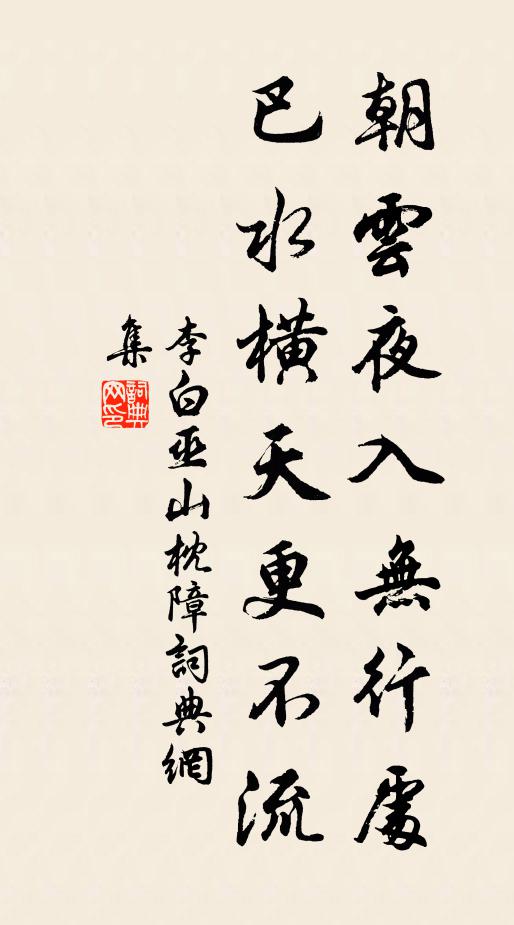 朝雲夜入無行處
巴水橫天更不流
李白巫山枕障詞典網
集
詞典
网印